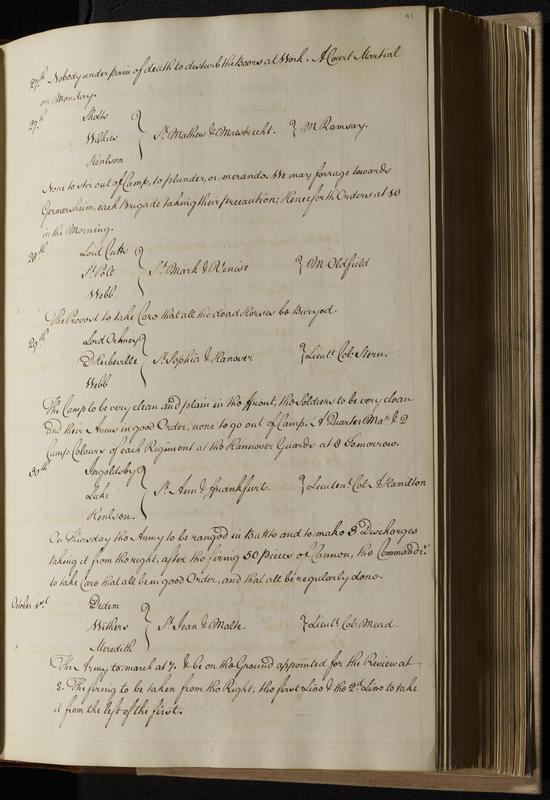 41
27th Nobody under pain of death to disturb the Boors at Work. A Court Martial
on Monday.
27th Sholts
Wilkes } St. Mathew & Maestrecht. } M Ramsay.
Henlson
None to stir out of Camp, to plunder, or merando. We may forrage towards
Germersheim, each Brigade taking their precaution; Henceforth Orders at 10
in the Morning.
28th Lord Cutts
St. Pole } St. Mark & Venise } M Oldfield
Webb
The Provost to take Care that all the dead Horses be Buryed.
29th Lord Orkney
D'Herbeville } St. Sophia & Hanover } Lieutt. Col. Stern.
Webb
The Camp to be very clean and plain in the ffront, the Soldiers to be very clean
and their Arms in good Order, none to go out of Camp. A Quarter Mar. & 2
Camp Colours of each Regiment at the Hannover Guards at 8 Tomorrow.
30th Ingoldsby
Luke } St. Ann & ffrankfurt. } Lieutent. Col. Hamilton
Henlson.
On Thursday the Army to be ranged in Battle and to make 3 Discharges
taking it from the right, after the firing 50 pieces of Cannon, the Commandrs.
to take Care that all be in good Order, and that all be regularly done.
October 1st. Dedem
Withers } St. Jean & Malte. } Lieutt. Col. Mead.
Meredith
The Army to march at 7. & be on the Ground appointed for the Review at
8. The firing to be taken from the Right, the first Line & the 2d. Line to take
it from the left of the first.